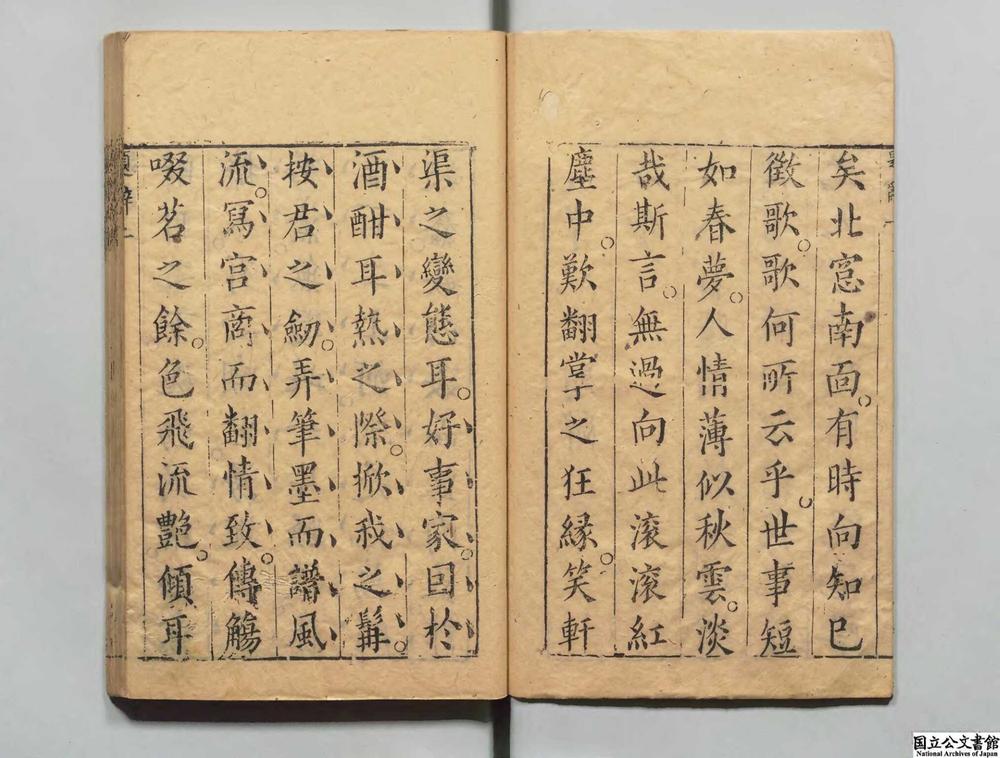 矣北窓南面。有時向知己
徵歌。歌何所云乎。世事短
如春夢。人情薄似秋雲。淡
哉斯言。無過向此滾滾紅
塵中。歎翻掌之狂緣。笑軒
渠之變態耳。好事家。回於
酒酣耳熱之際。掀我之髯。
按君之劒。弄筆墨而譜風
流。寫宮商而翻情致。傳觴
啜茗之餘。色飛流艷。傾耳
題辭 一
国立公文書館
National Archives of Japan